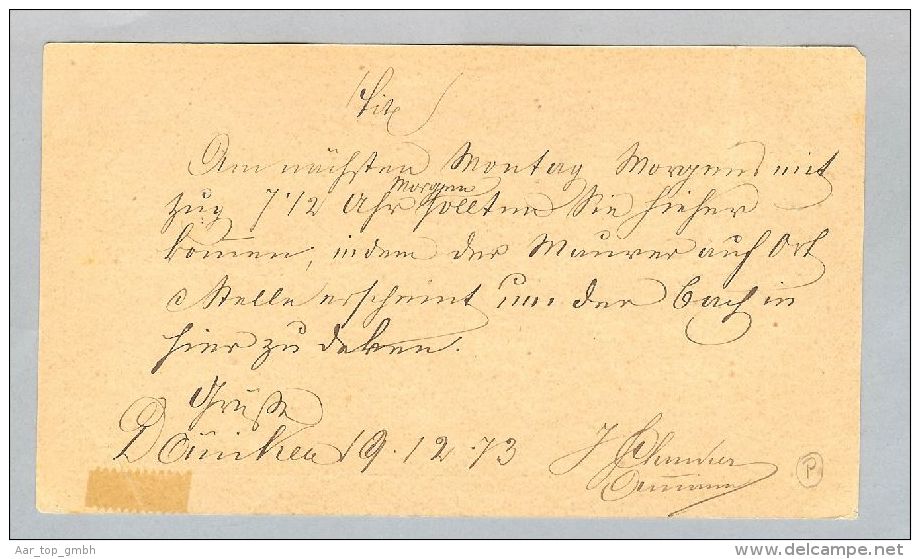 Am nächsten Montag Morgens mit
zug 7 1/2 Uhr Morgens sollten Sie hieher
kommen, indem der Maurer auf Ort
Stelle erscheint um den bach in
hier zu deken.
Grüsst
Däniken 19.12.73 J Schenker
Ammann
P
Aar_top_gmbh
www.delcampe.net